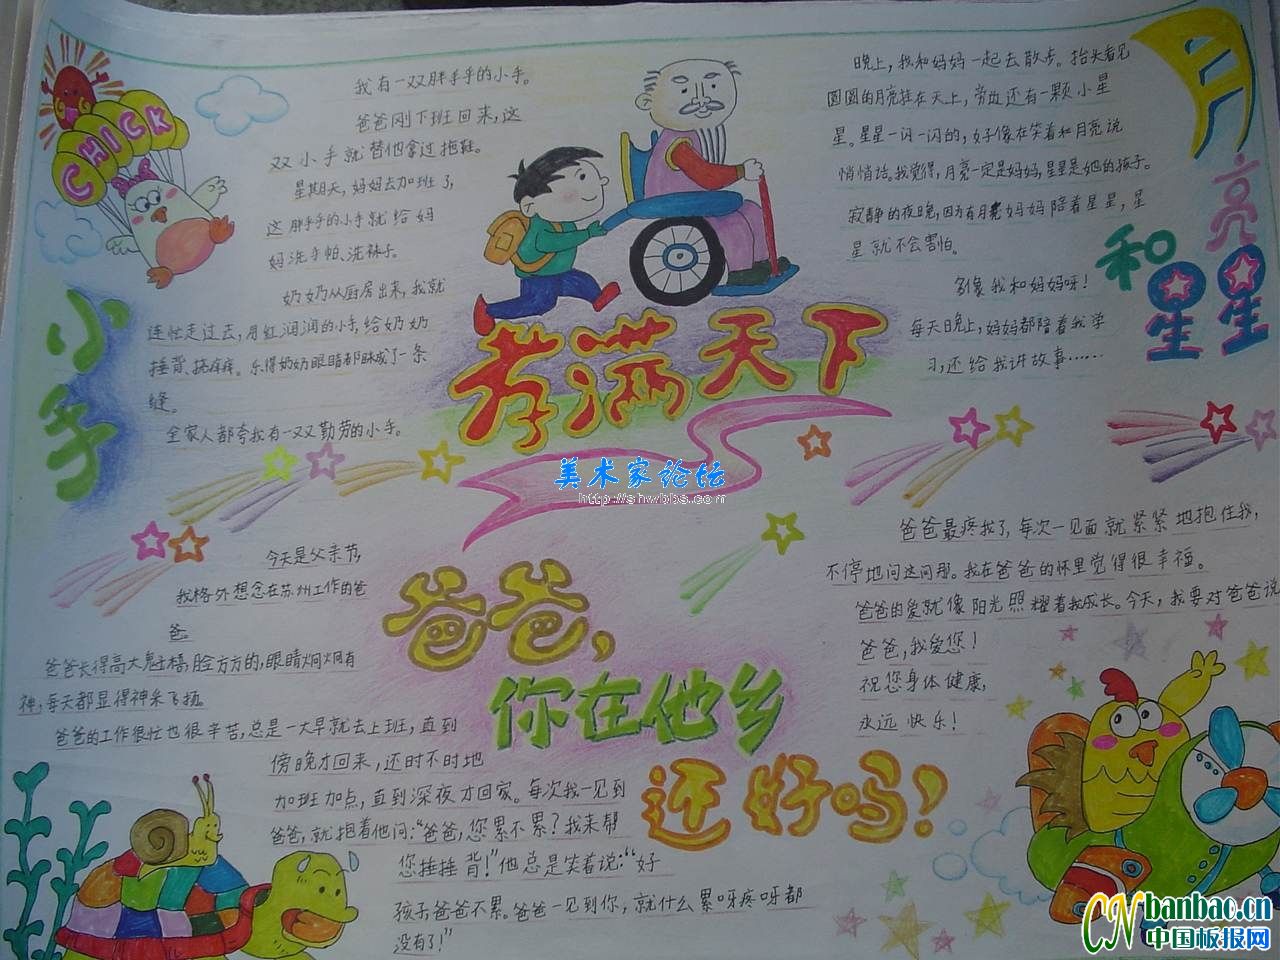 CHICK
小手
我有一双胖乎乎的小手。
爸爸刚下班回来，这
双小手就替他拿过拖鞋。
星期天，妈妈去加班了，
这胖乎乎的小手就给妈
妈洗手帕、洗袜子。
奶奶从厨房出来，我就
连忙走过去，用红润润的小手，给奶奶
捶背、挠痒痒。乐得奶奶眼睛都眯成了一条
缝。
全家人都夸我有一双勤劳的小手。
孝满天下
美术家论坛
http://shwbbs.com
月亮和星星
晚上，我和妈妈一起去散步。抬头看见
圆圆的月亮挂在天上，旁边还有一颗小星
星。星星一闪一闪的，好像在笑着和月亮说
悄悄话。我觉得，月亮一定是妈妈，星星是她的孩子。
寂静的夜晚，因为有月亮妈妈陪着星星，星
星就不会害怕。
多像我和妈妈呀！
每天晚上，妈妈都陪着我学
习，还给我讲故事……
爸爸，
你在他乡
还好吗！
今天是父亲节，
我格外想念在苏州工作的爸
爸。
爸爸长得高大魁梧，脸方方的，眼睛炯炯有
神，每天都显得神采飞扬。
爸爸的工作很忙也很辛苦，总是一大早就去上班，直到
傍晚才回来，还时不时地
加班加点，直到深夜才回家。每次我一见到
爸爸，就抱着他问：“爸爸，您累不累？我来帮
您捶捶背！”他总是笑着说：“好
孩子，爸爸不累。爸爸一见到你，就什么累呀疼呀都
没有了！”
爸爸最疼我了，每次一见面就紧紧地抱住我，
不停地问这问那。我在爸爸的怀里觉得很幸福。
爸爸的爱就像阳光照耀着我成长。今天，我要对爸爸说
爸爸，我爱您！
祝您身体健康，
永远快乐！
CN banbao.cn
中国板报网